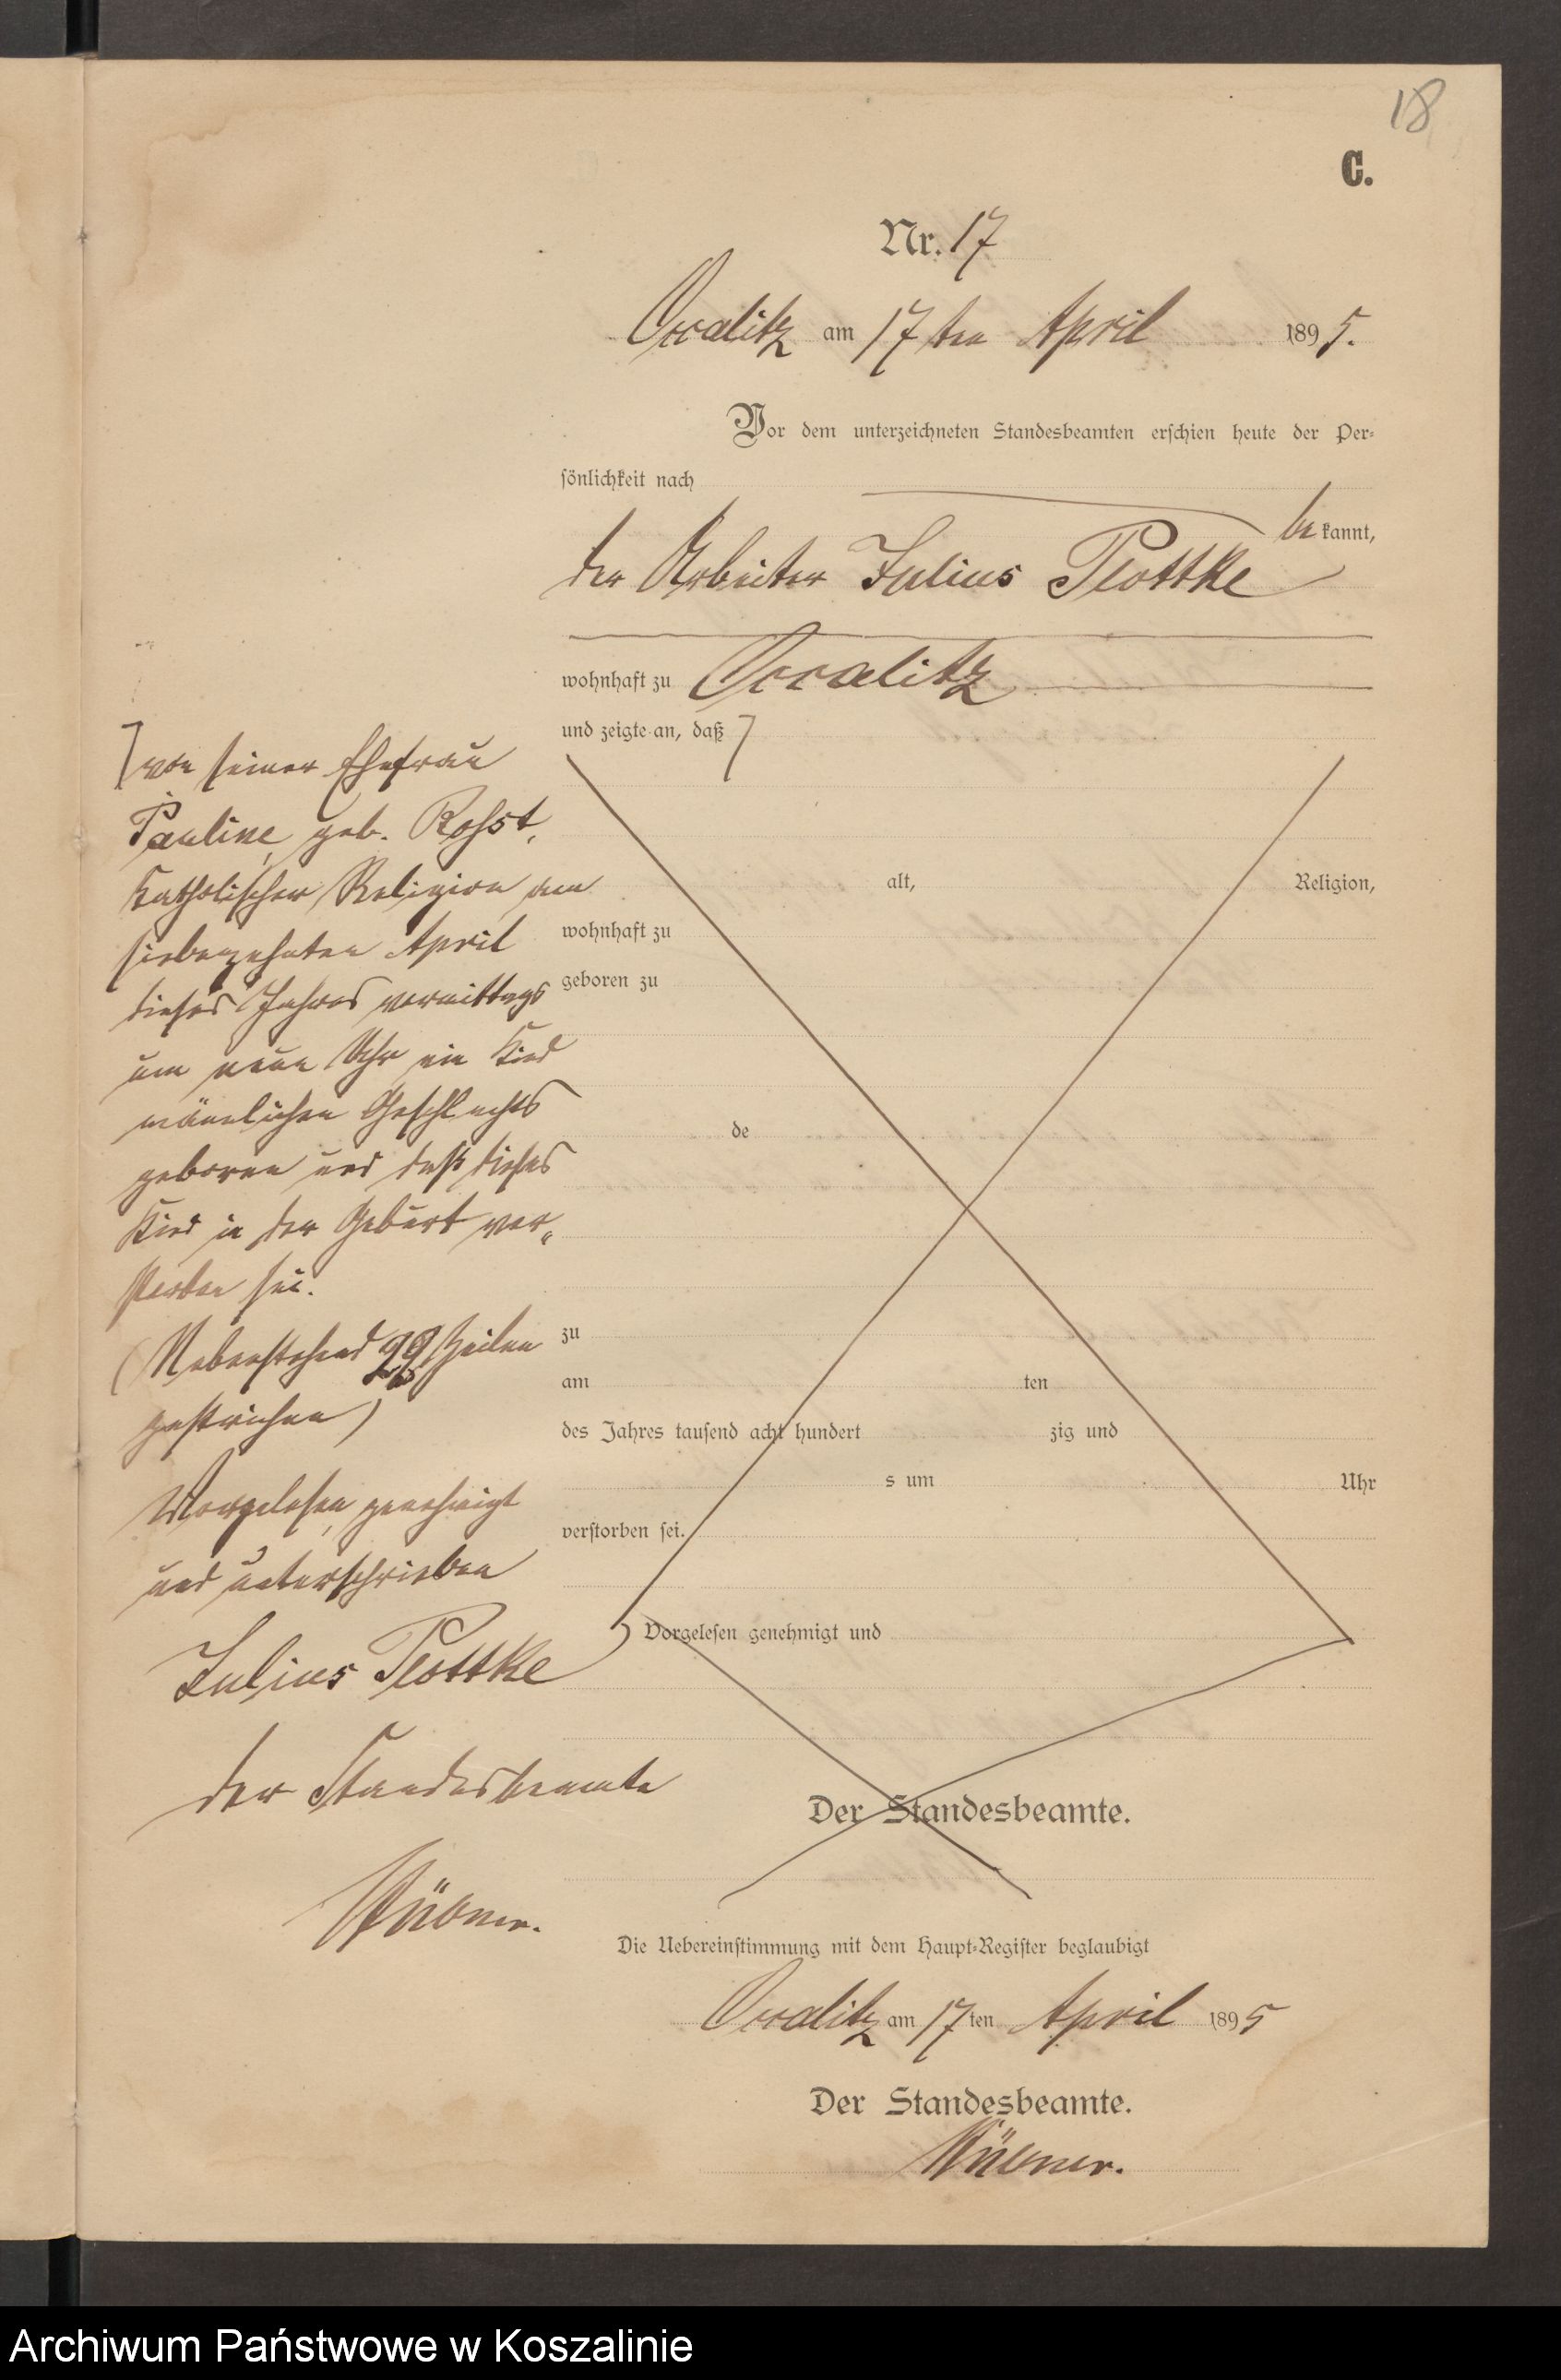 18
C.
Nr. 17
Occalitz am 17ten April 1895.
Vor dem unterzeichneten Standesbeamten erschien heute der Per-
sönlichkeit nach
be kannt,
der Arbeiter Julius Plottke
wohnhaft zu Occalitz
und zeigte an, daß ⌉
⌉ von seiner Ehefrau
Pauline, geb.
katholischer Religion am
siebenzehnten April
dieses Jahres vormittags
um neun Uhr ein Kind
mänlichen Geschlechts
geboren und daß dieses
Kind in der Geburt ver„
storben sei.
(Nebenstehend 29 Zeilen
gestrichen)
Vorgelesen, genehmigt
und unterschrieben
Julius Plottke
der Standesbeamte
alt, Religion,
wohnhaft zu
geboren zu
de
zu
am ten
des Jahres tausend acht hundert zig und
s um Uhr
verstorben sei.
Vorgelesen genehmigt und
Der Standesbeamte.
Die Uebereinstimmung mit dem Haupt-Register beglaubigt
Occalitz am 17ten April 1895
Der Standesbeamte.
Archiwum Państwowe w Koszalinie